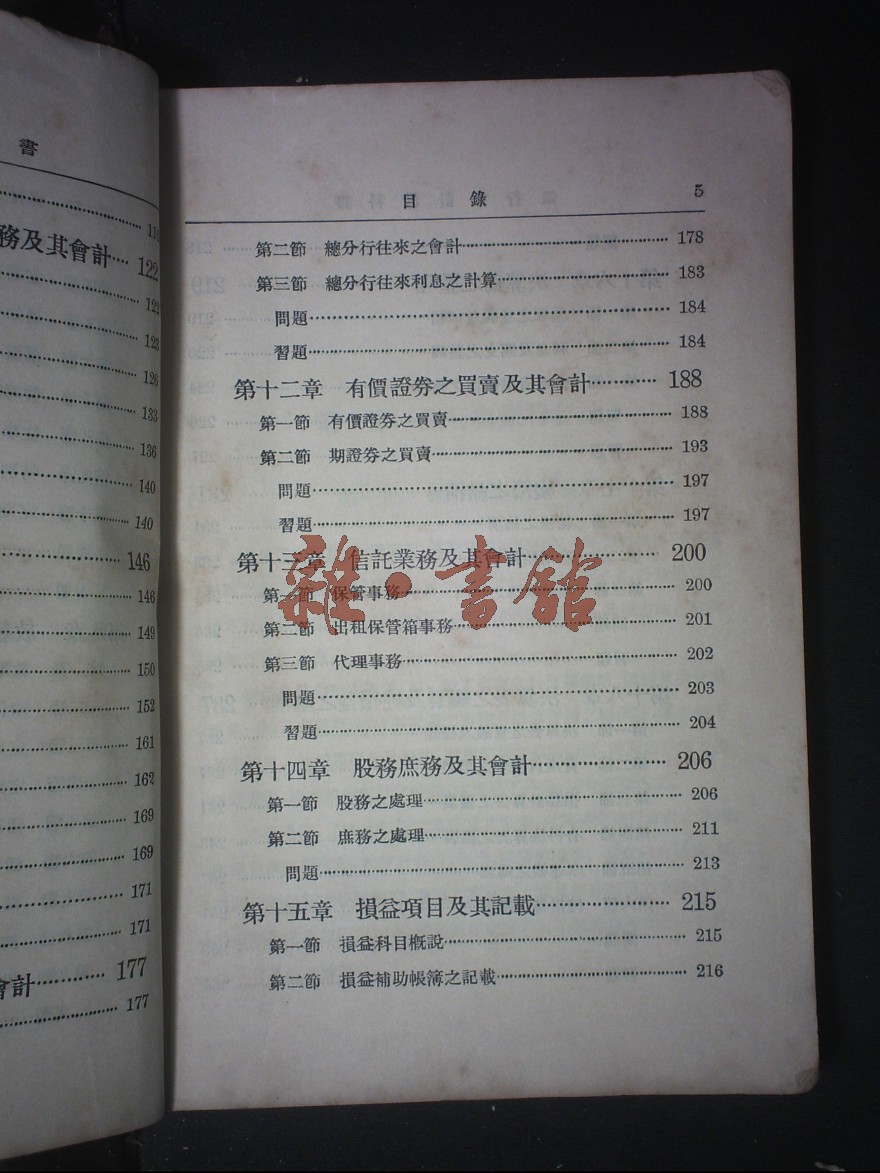 書
110
務及其會計 122
122
123
126
133
136
140
140
146
146
149
150
152
161
162
169
169
171
171
會計 177
177
目錄 5
第二節 總分行往來之會計 178
第三節 總分行往來利息之計算 183
問題 184
習題 184
第十二章 有價證券之買賣及其會計 188
第一節 有價證券之買賣 188
第二節 期證券之買賣 193
問題 197
習題 197
第十三章 信託業務及其會計 200
第一節 保管事務 200
第二節 出租保管箱事務 201
第三節 代理事務 202
問題 203
習題 204
第十四章 股務庶務及其會計 206
第一節 股務之處理 206
第二節 庶務之處理 211
問題 213
第十五章 損益項目及其記載 215
第一節 損益科目概說 215
第二節 損益補助帳簿之記載 216
雜·書館